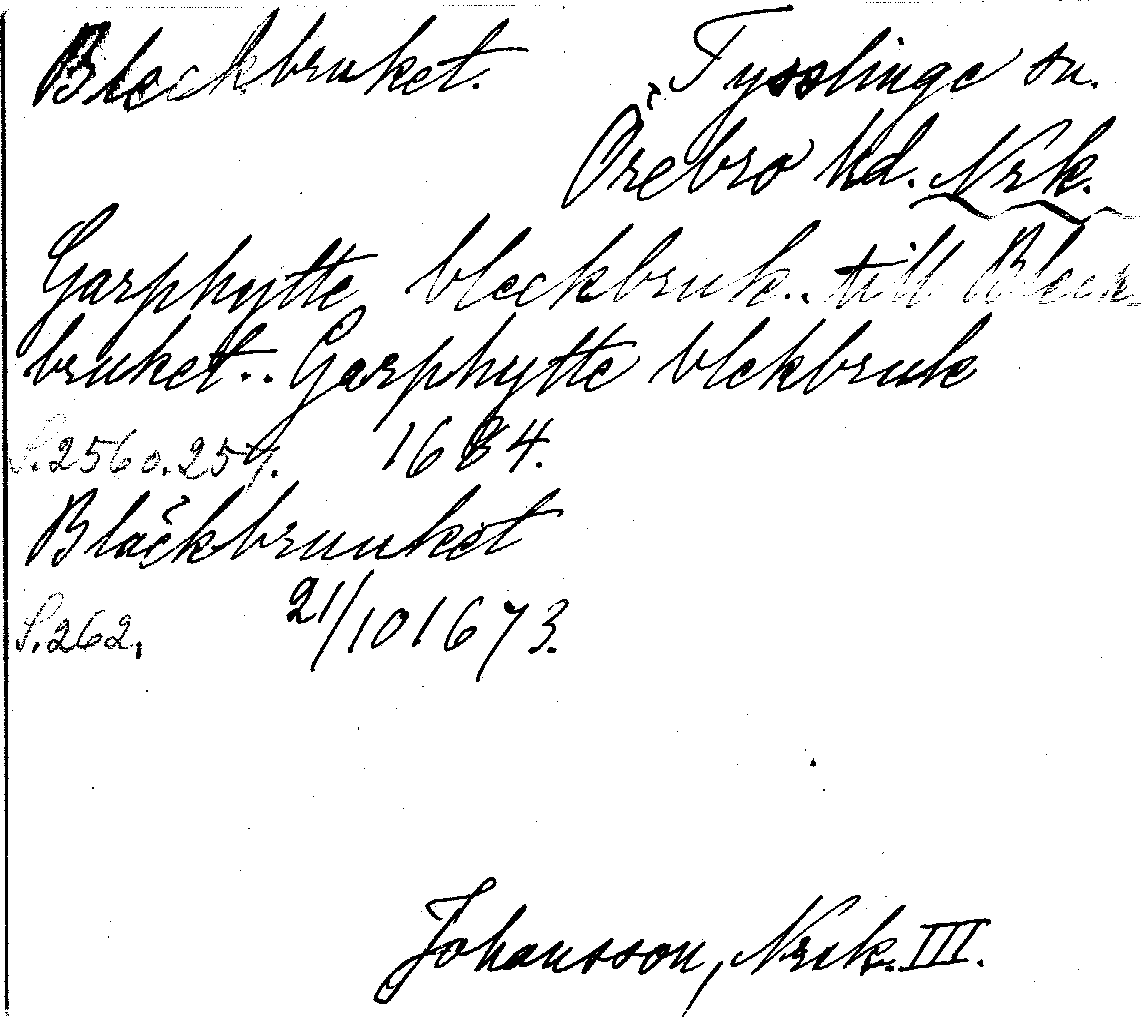 Bleckbruket. Tysslinge sn.
Örebro hd. Nrk.
Garphytte bleckbruk.. till Bleck-
bruket.. Garphytte blekbruk
S.256 o. 257. 1684.
Bläckbruuket
S.262, 21/10 1673.
Johansson, Nrk. III.